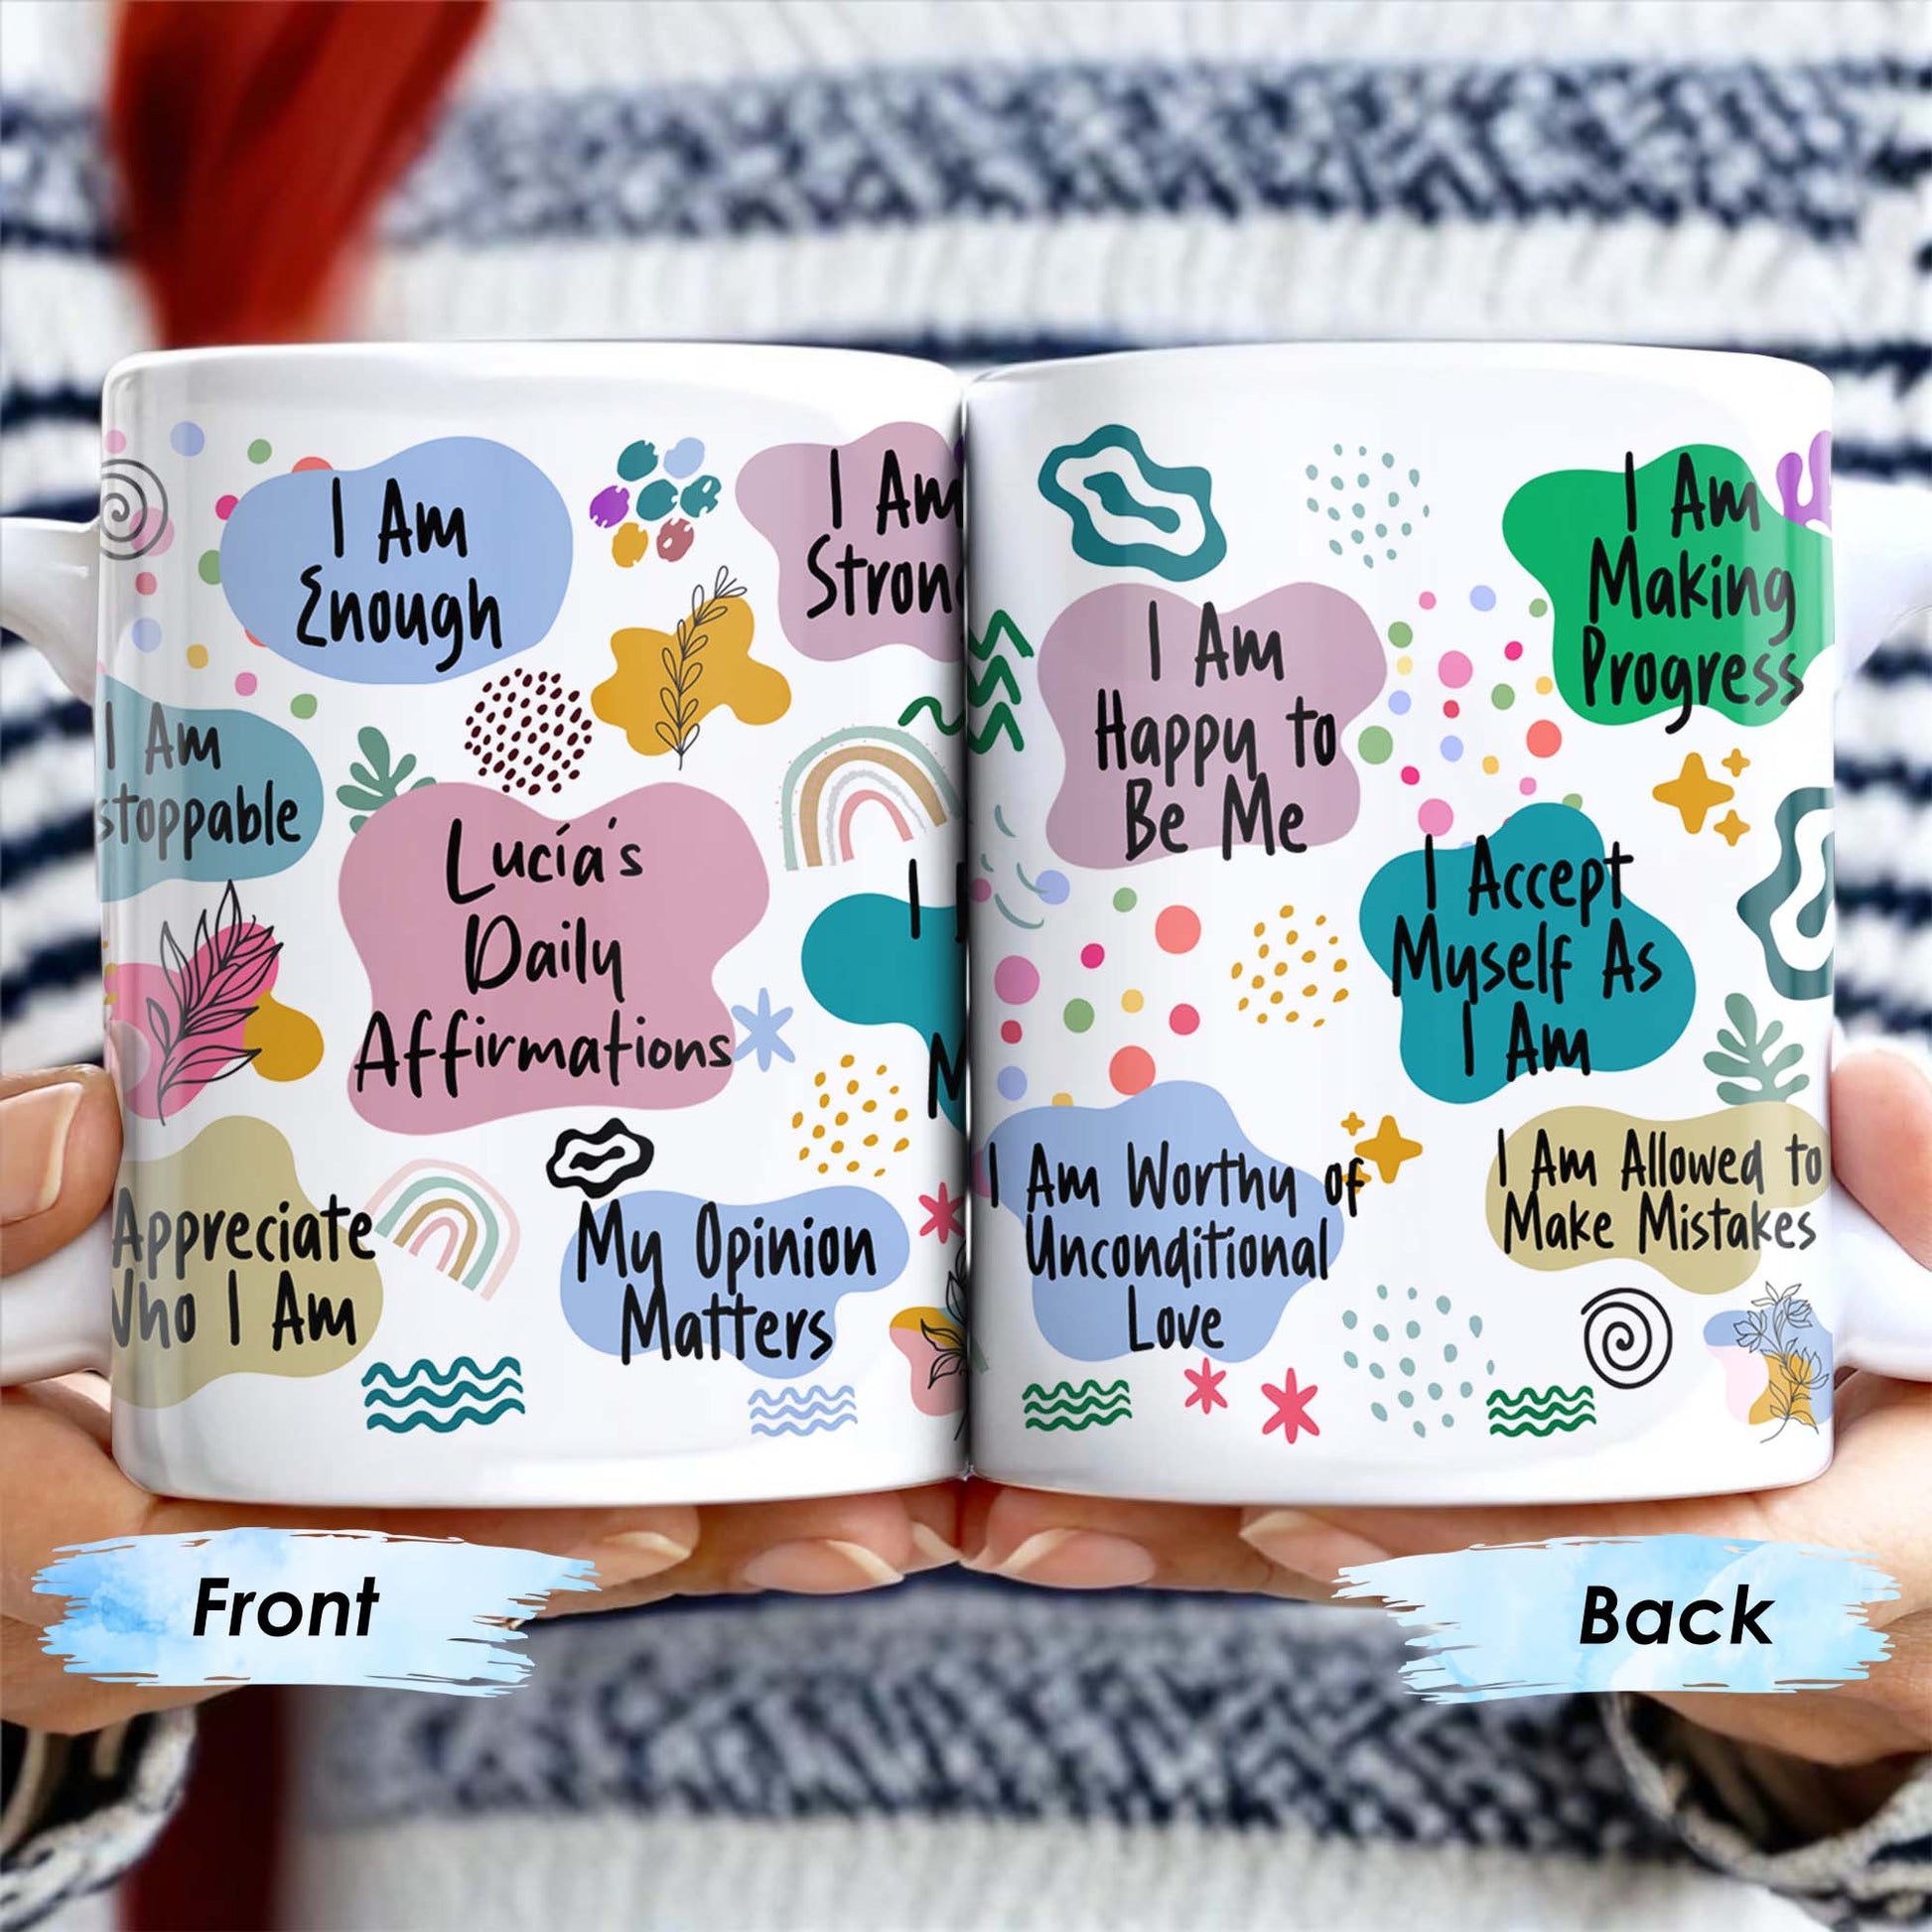 I Am
Enough
I Am
I Am
stoppable
Lucía's
Daily
Affirmations
I
Appreciate
Who I Am
My Opinion
Matters
I Am
Making
Progress
I Am
Happy to
Be Me
I Accept
Myself As
I Am
I Am Worthy of
Unconditional
Love
I Am Allowed to
Make Mistakes
Front
Back